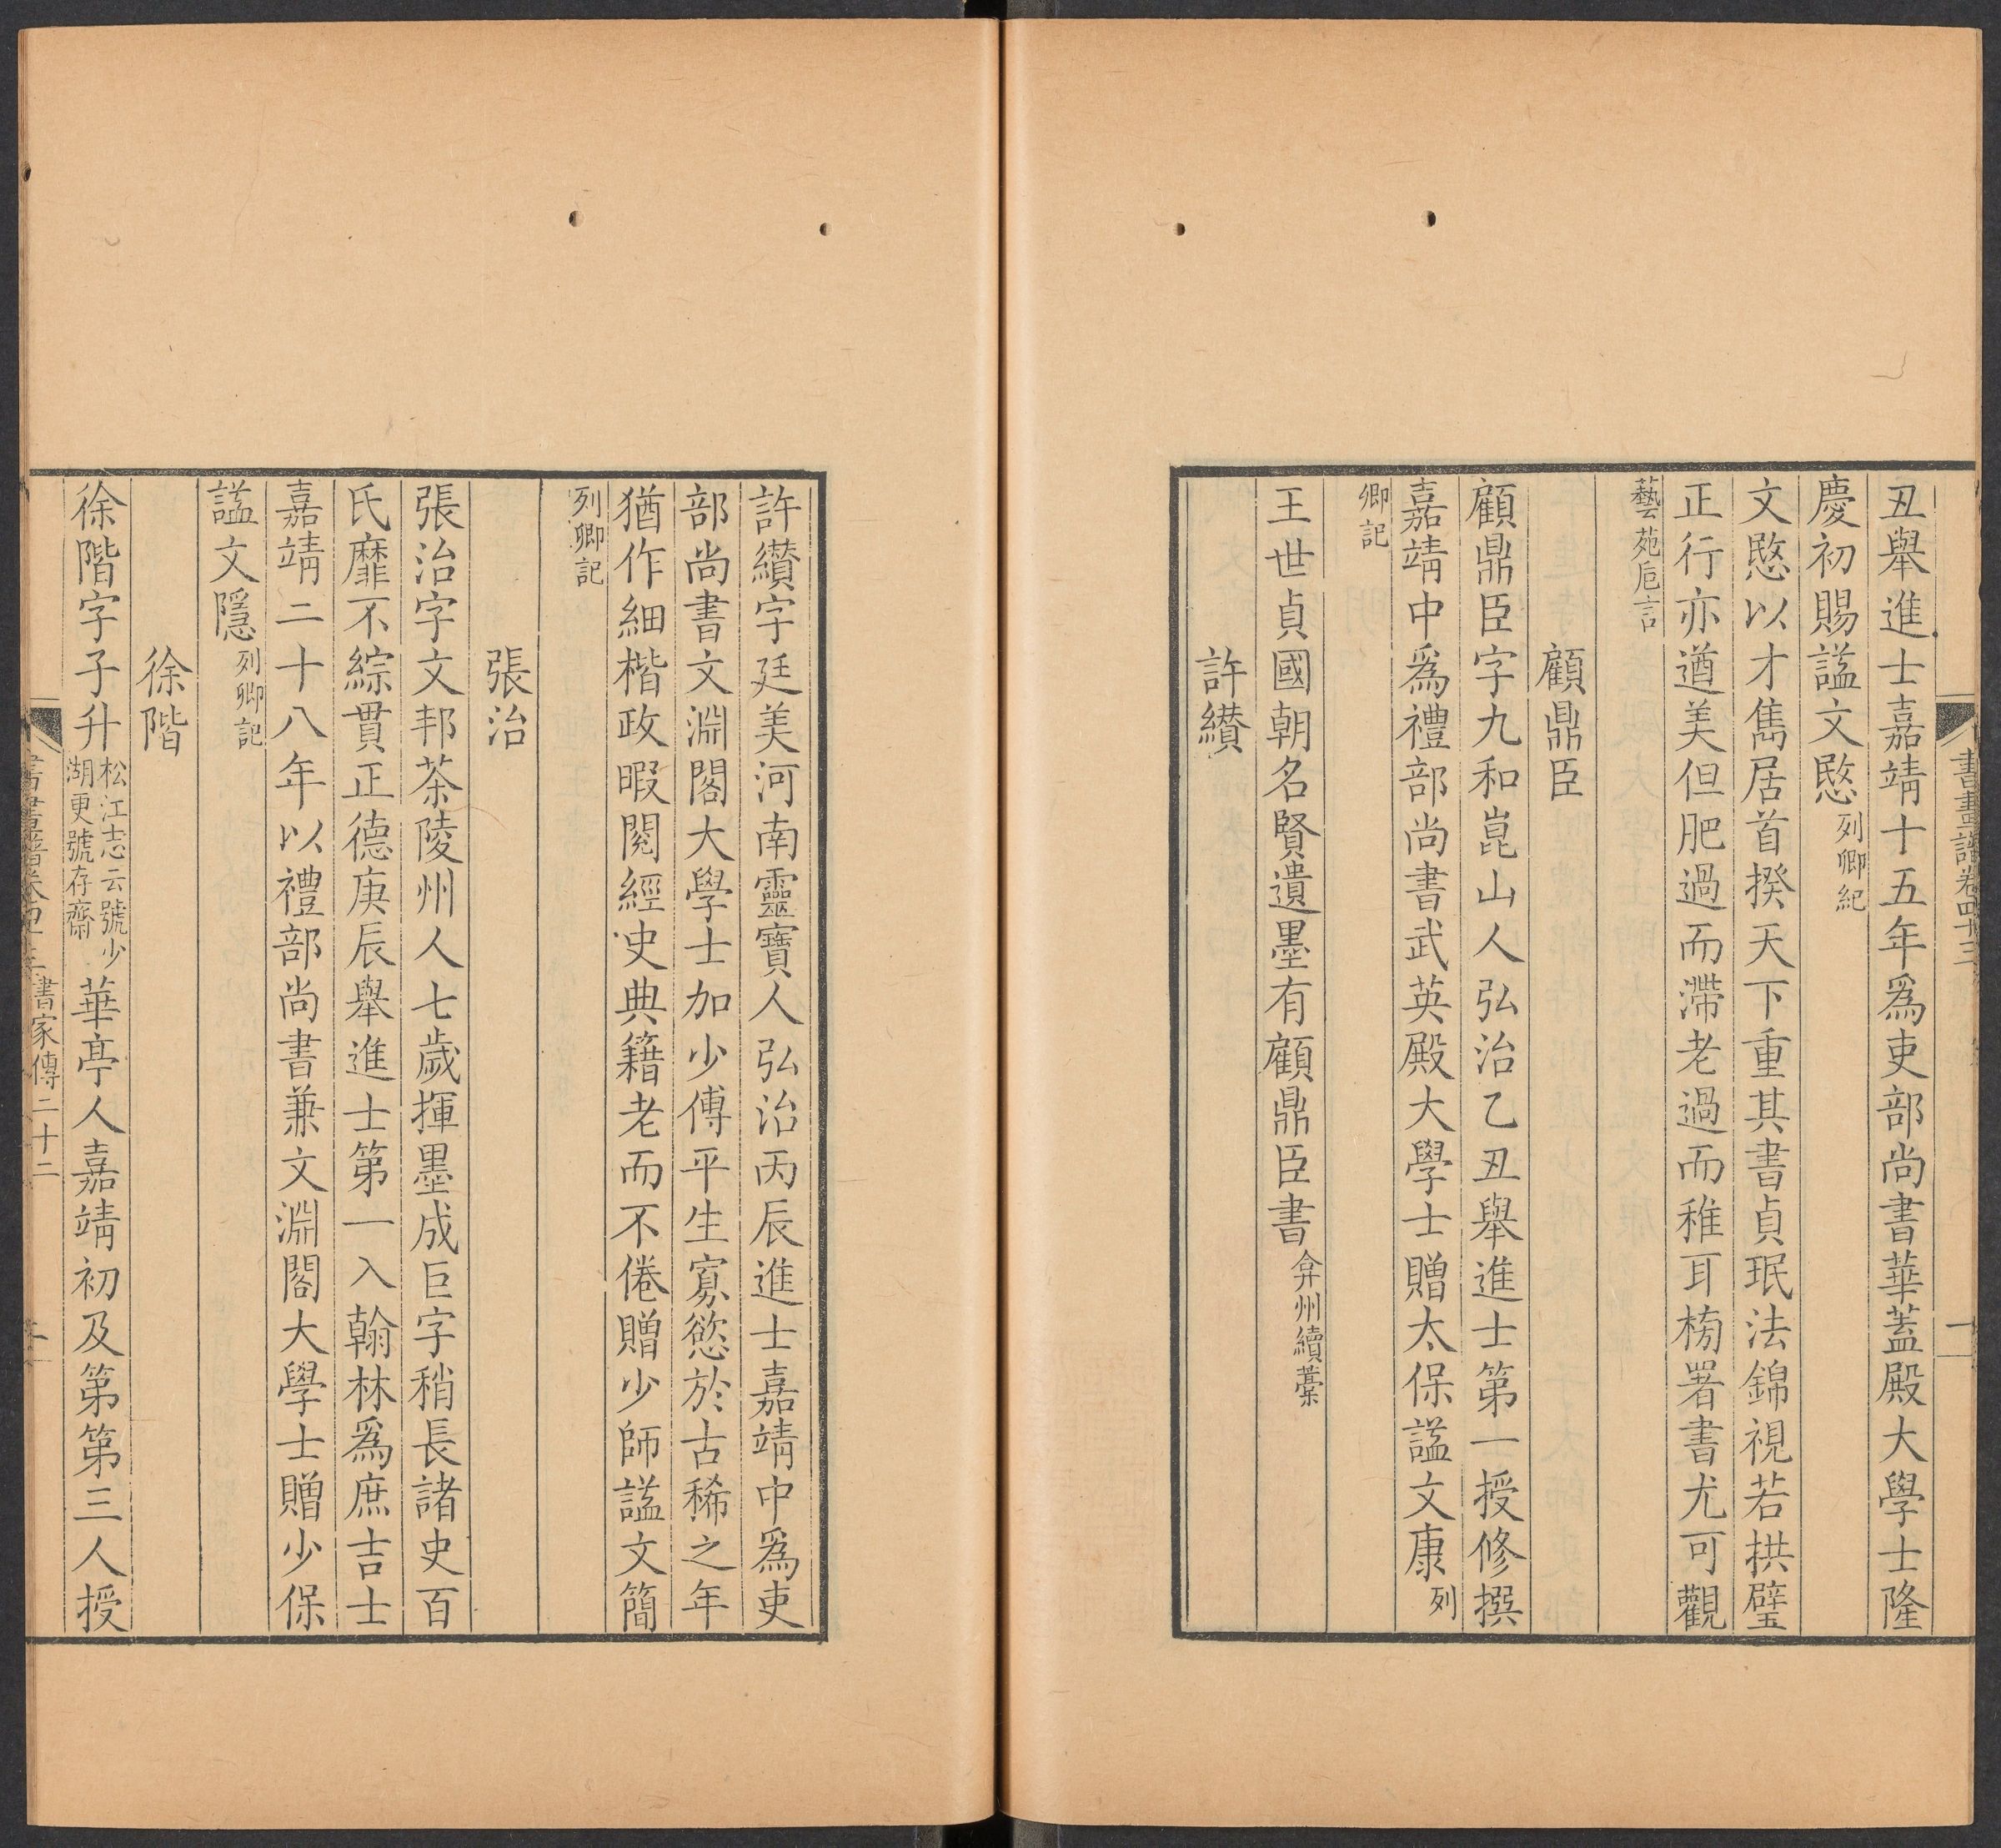 丑舉進士嘉靖十五年爲吏部尚書華蓋殿大學士隆
慶初賜諡文愍列卿紀
文愍以才雋居首揆天下重其書貞珉法錦視若拱璧
正行亦遒美但肥過而滯老過而稚耳榜署書尤可觀
藝苑巵言
顧鼎臣
顧鼎臣字九和崑山人弘治乙丑舉進士第一授修撰
嘉靖中爲禮部尚書武英殿大學士贈太保諡文康列
卿記
王世貞國朝名賢遺墨有顧鼎臣書弇州續藁
許纘
許纘字廷美河南靈寶人弘治丙辰進士嘉靖中爲吏
部尚書文淵閣大學士加少傅平生寡慾於古稀之年
猶作細楷政暇閱經史典籍老而不倦贈少師諡文簡
列卿記
張治
張治字文邦茶陵州人七歲揮墨成巨字稍長諸史百
氏靡不綜貫正德庚辰舉進士第一入翰林爲庶吉士
嘉靖二十八年以禮部尚書兼文淵閣大學士贈少保
諡文隱列卿記
徐階
徐階字子升松江志云號少湖更號存齋華亭人嘉靖初及第第三人授
書家傳二十二